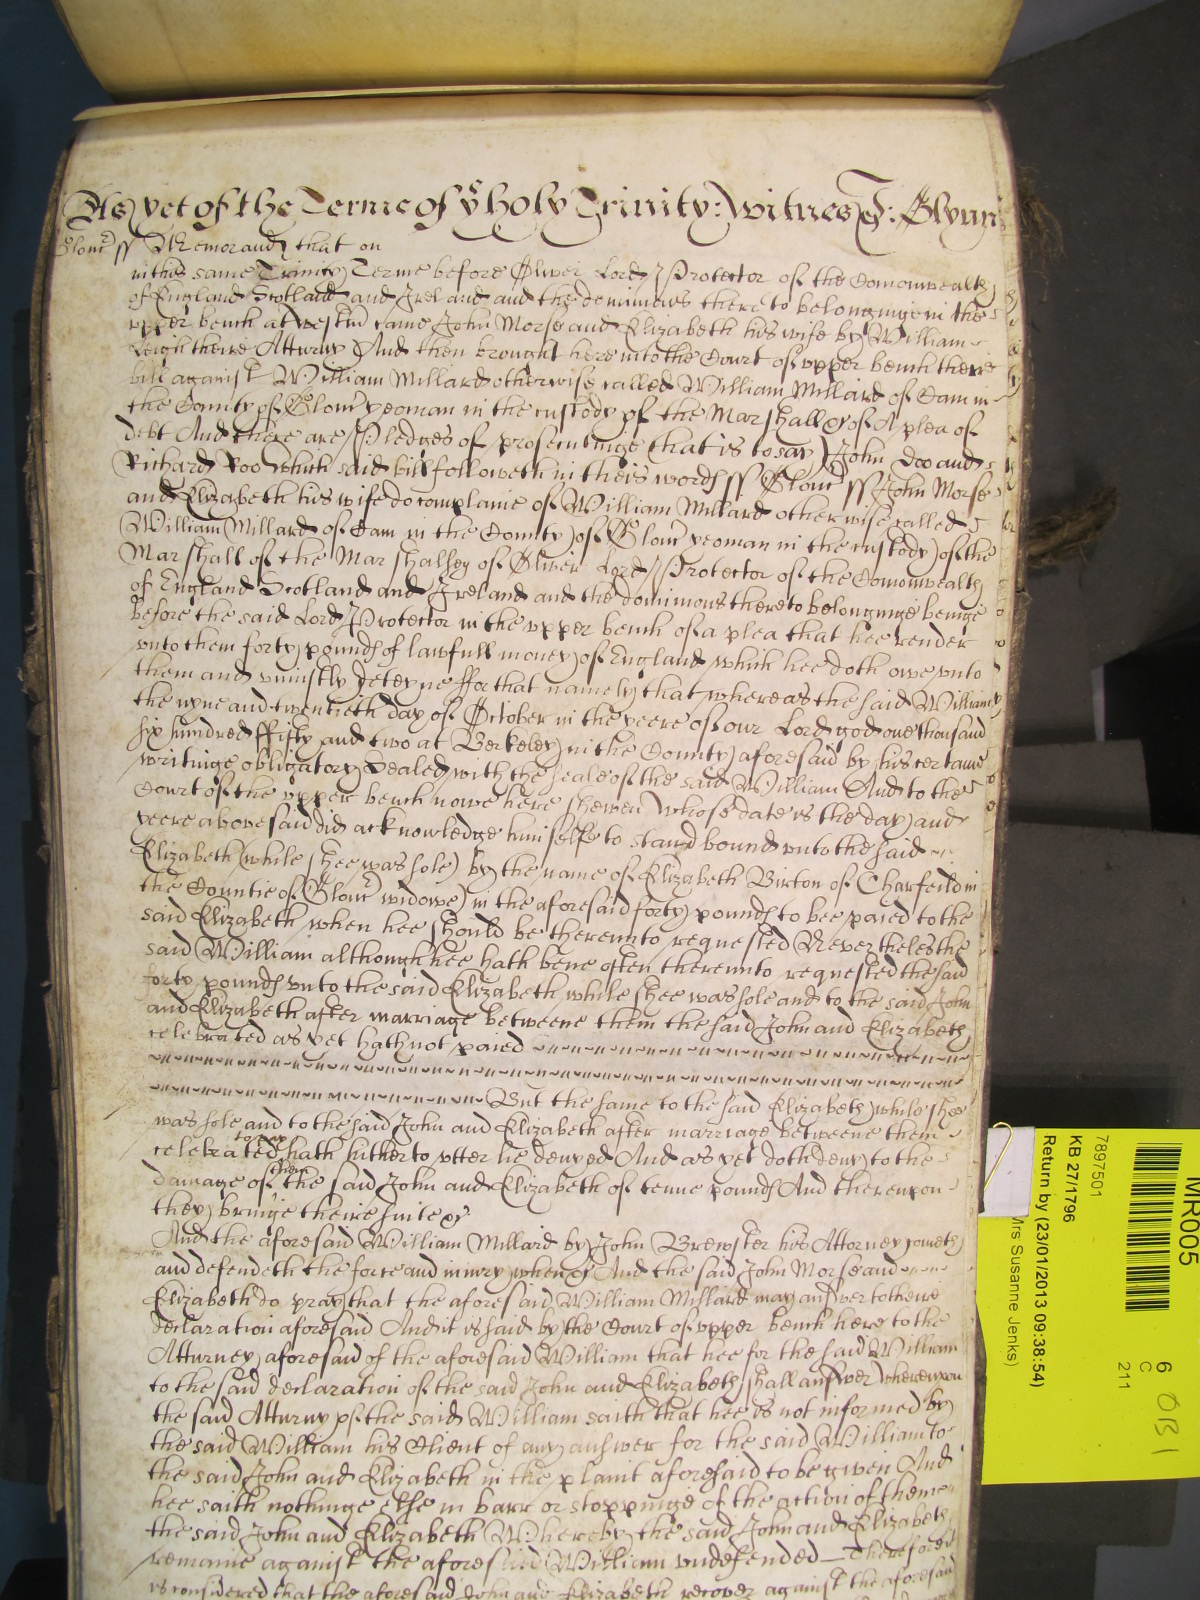 As yet of the Terme of ye holy Trinity: witnes J: Glynn
Glouc ss Memorand that on
in this same Trinity Terme before Oliver Lord Protector of the Comonwealth
of England Scotland and Ireland and the dominions there to belonginge in the
upper bench at Westm came John Morse and Elizabeth his wife by William
Leigh theire Atturny And then brought here into the Court of upper bench theire
bill against William Millard otherwise called William Millard of Cam in
the County of Glouc yeoman in the custody of the Marshall &c of A plea of
debt And there are Pledges of prosecutinge that is to say John Doo and
Richard Roo Which said bill followeth in theis words ss Glouc ss John Morse
and Elizabeth his wife do complaine of William Millard otherwise called
William Millard of Cam in the County of Glouc yeoman in the custody of the
Marshall of the Marshalsey of Oliver Lord Protector of the Comonwealth
of England Scotland and Ireland and the dominions thereto belonginge beinge
before the said Lord Protector in the upper bench of a plea that hee render
unto them forty pounds of lawfull money of England which hee doth owe unto
them and uniustly deteyne ffor that namely that whereas the said William
the nyne and twentieth day of October in the yeere of our Lord god one thousand
six hundred ffifty and two at Berkeley in the County aforesaid by his certaine
writinge obligatory Sealed with the seale of the said William And to the
Court of the upper bench nowe here shewen whose date is the day and
yeere abovesaid did acknowledge himselfe to stand bound unto the said
Elizabeth (while shee was sole) by the name of Elizabeth Birton of Charfeild in
the Countie of Glouc widowe) in the aforesaid forty pounds to bee paied to the
said Elizabeth when hee should be thereunto requested Neverthelesthe
said William although hee hath bene often thereunto requested the said
forty pounds unto the said Elizabeth while shee was sole and to the said John
and Elizabeth after marriage betweene them the said John and Elizabeth
celebrated as yet hath not paied
But the same to the said Elizabeth while shee
was sole and to the said John and Elizabeth after marriage betweene them
celebrated to pay hath hitherto utterlie denyed And as yet doth deny to the
damage of them the said John and Elizabeth of tenne pounds And thereupon
they bringe theire suite &c
And the aforesaid William Millard by John Brewster his Attorney cometh
and defendeth the force and iniury when &c And the said John Morse and
Elizabeth do pray that the aforesaid William Millard may answer to theire
declaration aforesaid And it is said by the Court of upper bench here to the
Atturney aforesaid of the aforesaid William that hee for the said William
to the said declaration of the said John and Elizabeth shall answer whereupon
the said Atturny of the said William saith that hee is not informed by
the said William his Client of any answer for the said William to
the said John and Elizabeth in the plaint aforesaid to be given And
hee saith nothinge else in barr or stoppinge of the action of them
the said John and Elizabeth Whereby the said John and Elizabeth
remaine against the aforesaid William undefended Therefore it
is considered that the aforesaid John and Elizabeth recover against the aforesaid
MR005
6
C
211
7897501
KB 27/1796
Return by (23/01/2013 09:38:54)
Mrs Susanne Jenks)